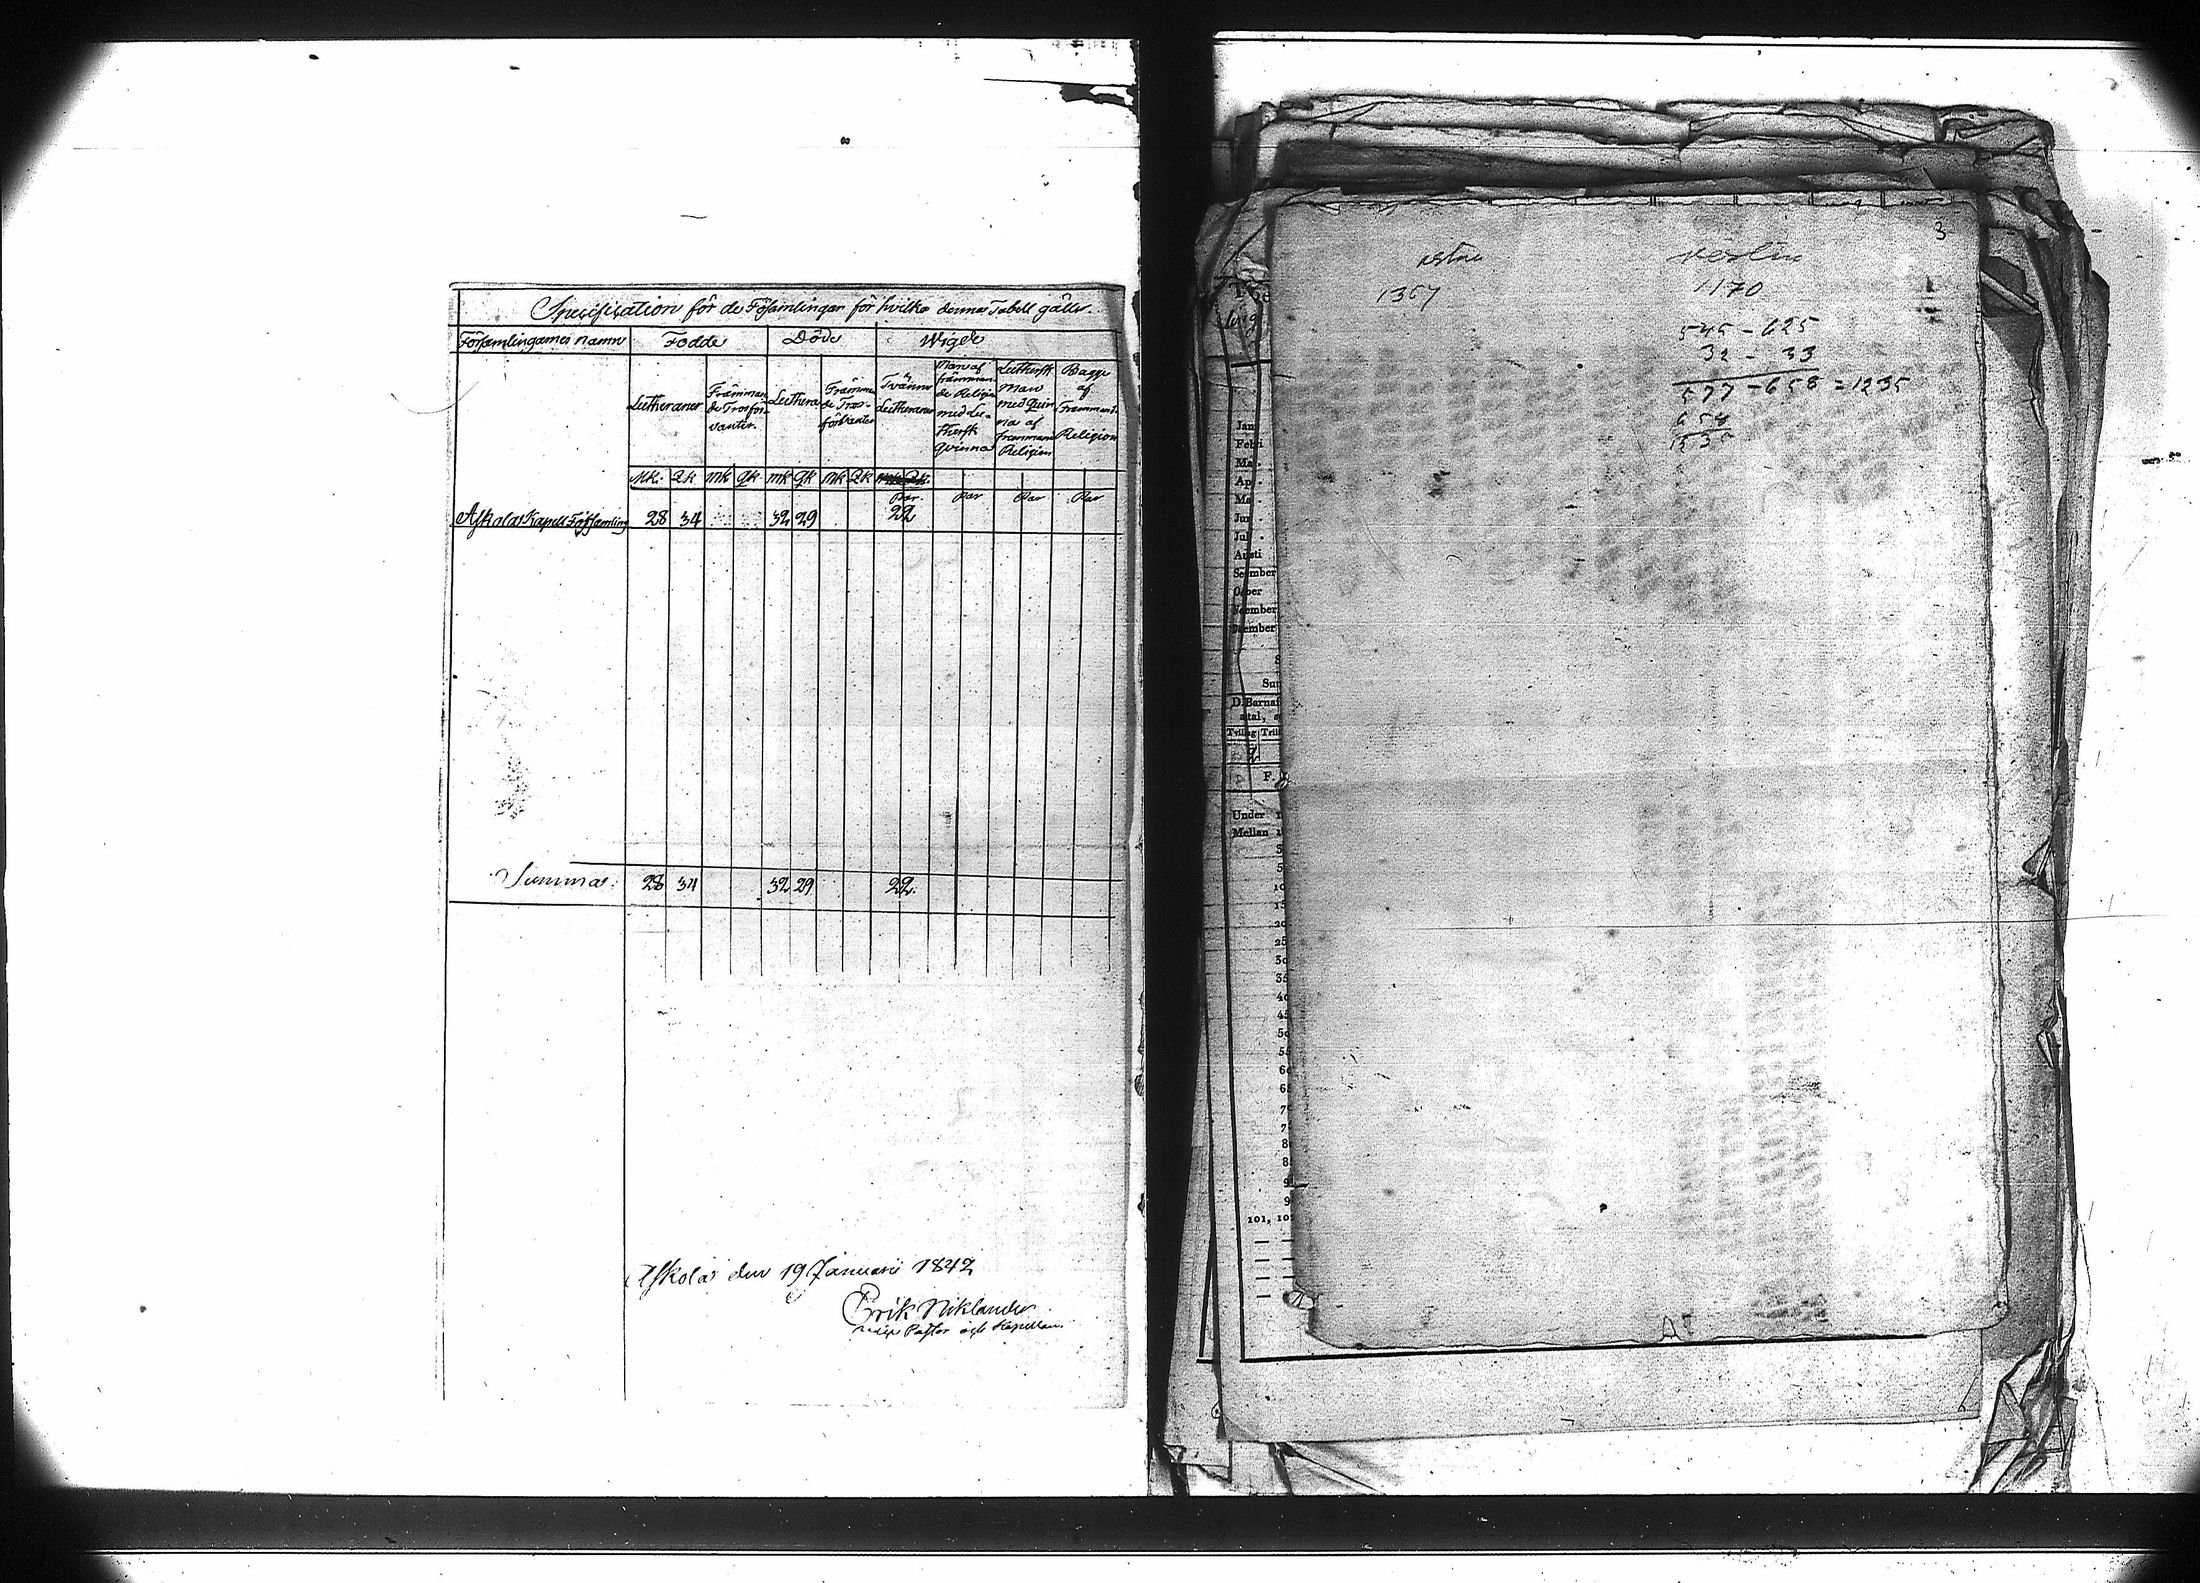 Specification för de Församlingar för hvilka denna Tabell gäller.
Församlingarnes namn Födde Döde Wigde
Lutheraner Främman- de Trosför- vanter. Luthera Främman de Tros- förvanter Tvänne Lutheraner Man af främman- de Religion med Lu- thersk Qvinna Luthersk Man med Quin na af främmand Religion Bagge af Frammand Religion
Mk. Qk mk qk mk qk mk Qk
Par. Par Par Par
Askola Kapell Församling 28 34 32 29 22
Summa: 28 34 32 29 22.
Askola den 19 Januarii 1842
Erik Niklander
vice Pastor och Kapellan.
3
1357 1170
545 - 625
32 - 33
577 - 658 = 1235
658
Jan
Febri
Ma
Ap
Ma
Jun
Jul
Au sti
Se mber
O ber
N ember
D ember
S
Sum
D. Barnaf
atal, s
Tvilling Trill
2
F.
Under 1
Mellan 1
3
5
10
15
20
25
30
35
40
45
50
55
60
65
7
7
8
8
9
9
101, 10